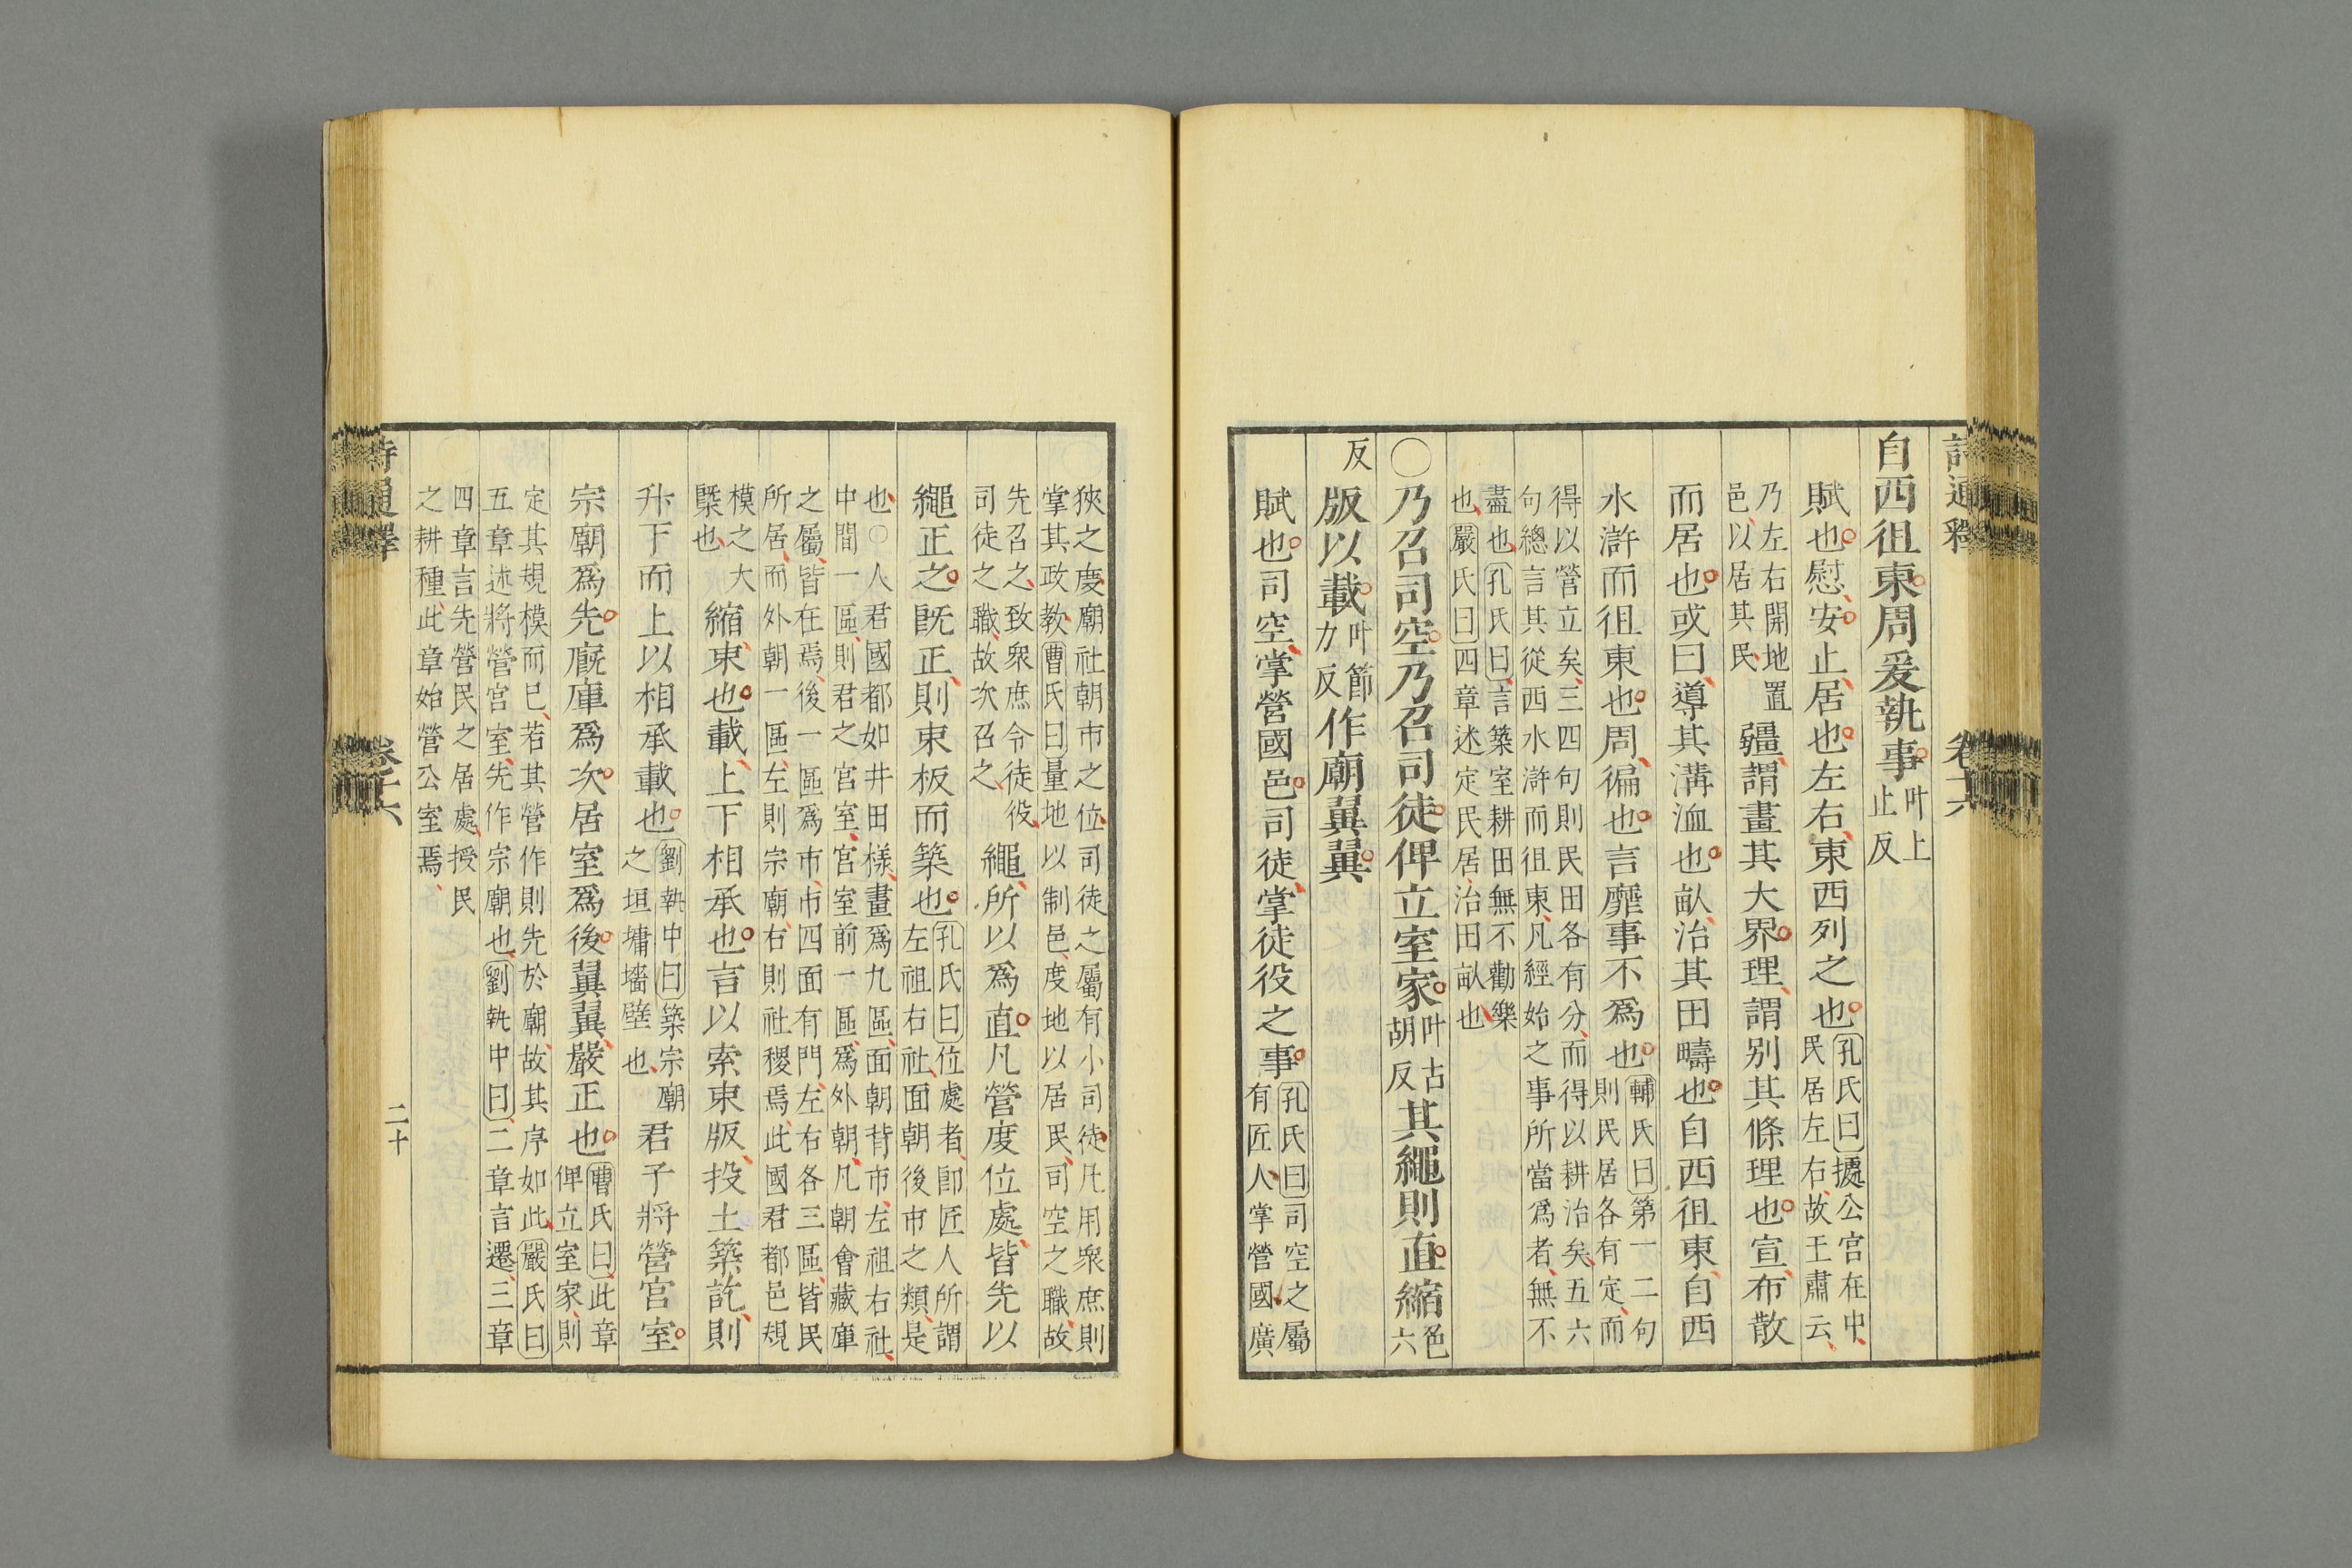 詩通釋 卷十六
自西徂東周爰執事叶上止反
賦也慰安止居也左右東西列之也孔氏曰據公宮在中民居左右故王肅云
乃左右開地置邑以居其民疆謂畫其大界理謂別其條理也宣布散
而居也或曰導其溝洫也畝治其田疇也自西徂東自西
水滸而徂東也周徧也言靡事不爲也輔氏曰第一二句則民居各有定而
得以營立矣三四句則民田各有分而得以耕治矣五六句總言其從西水滸而徂東凡經始之事所當爲者無不
盡也孔氏曰言築室耕田無不勸樂也嚴氏曰四章述定民居治田畝也
〇乃召司空乃召司徒俾立室家叶古胡反其繩則直縮色六
反版以載叶節力反作廟翼翼
賦也司空掌營國邑司徒掌徒役之事孔氏曰司空之屬有匠人掌營國廣
狹之度廟社朝市之位司徒之屬有小司徒凡用衆庶則掌其政教曹氏曰量地以制邑度地以居民司空之職故
先召之致衆庶令徒役司徒之職故次召之繩所以爲直凡營度位處皆先以
繩正之旣正則束板而築也孔氏曰位處者卽匠人所謂左祖右社面朝後市之類是
也〇人君國都如井田樣畫爲九區面朝背市左祖右社中間一區則君之宮室宮室前一區爲外朝凡朝會藏庫
之屬皆在焉後一區爲市市四面有門左右各三區皆民所居而外朝一區左則宗廟右則社稷焉此國君都邑規
模之大槩也縮束也載上下相承也言以索束版投土築訖則
升下而上以相承載也劉執中曰築宗廟之垣墉墻壁也君子將營宮室
宗廟爲先廐庫爲次居室爲後翼翼嚴正也曹氏曰此章俾立室家則
定其規模而已若其營作則先於廟故其序如此嚴氏曰五章述將營宮室先作宗廟也劉執中曰二章言遷三章
四章言先營民之居處授民之耕種此章始營公室焉
詩通釋 卷十六 二十